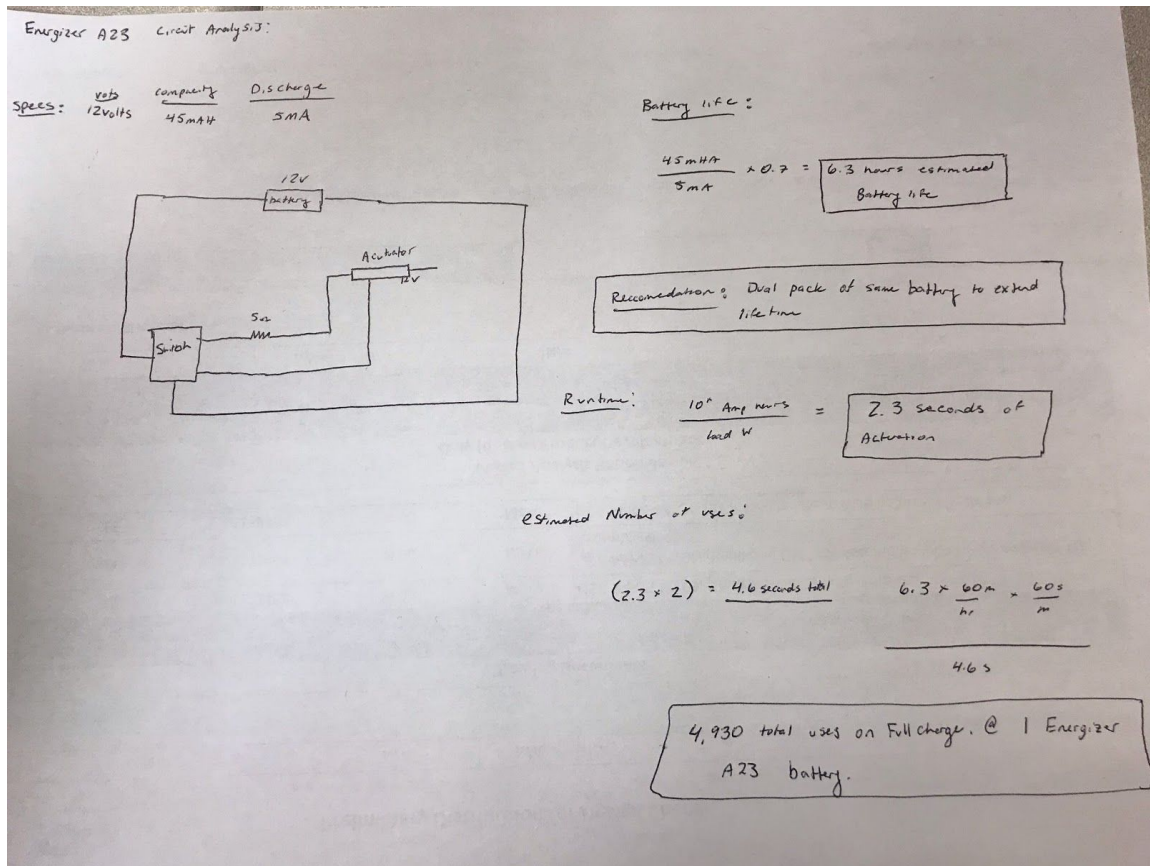 Energizer A23 Circuit Analysis:
Specs: volts compacity Discharge
12volts 45mAH 5mA
12v
battery
Acutuator
12v
5Ω
Switch
Battery life:
45mHA / 5mA × 0.7 = 6.3 hours estimated
Battery life
Reccomedation: Dual pack of same battery to extend
life time
Runtime: 10* Amp hours / Load W = 2.3 seconds of
Actuation
estimated Number of uses:
(2.3 × 2) = 4.6 seconds total
6.3 × 60m/hr × 60s/m
4.6 s
4,930 total uses on Full charge. @ 1 Energizer
A23 battery.